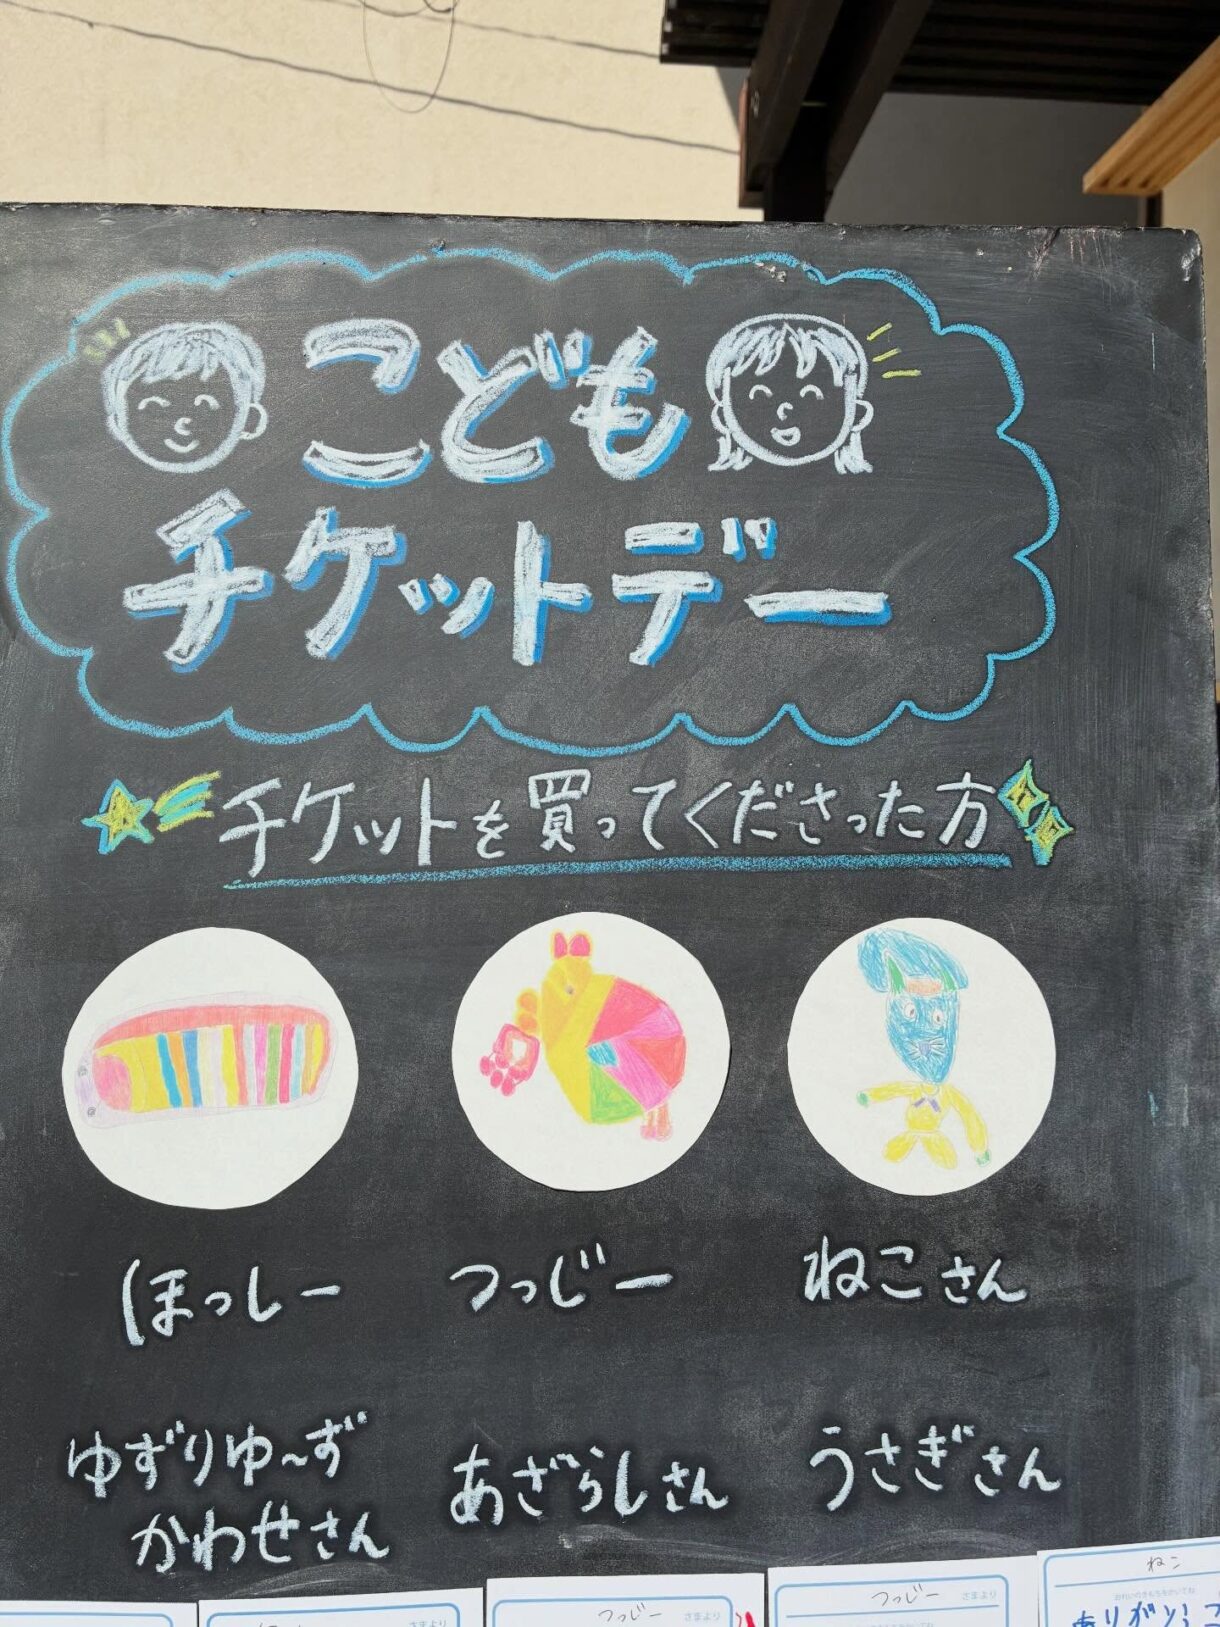 こども
チケットデー
チケットを買ってくださった方
ほっしー
つっじー
ねこさん
ゆずりゆ～ず
かわせさん
あざらしさん
うさぎさん
さまより
つっじー さまより
つっじー さまより
ねこ
おれいのきもちをかいてね